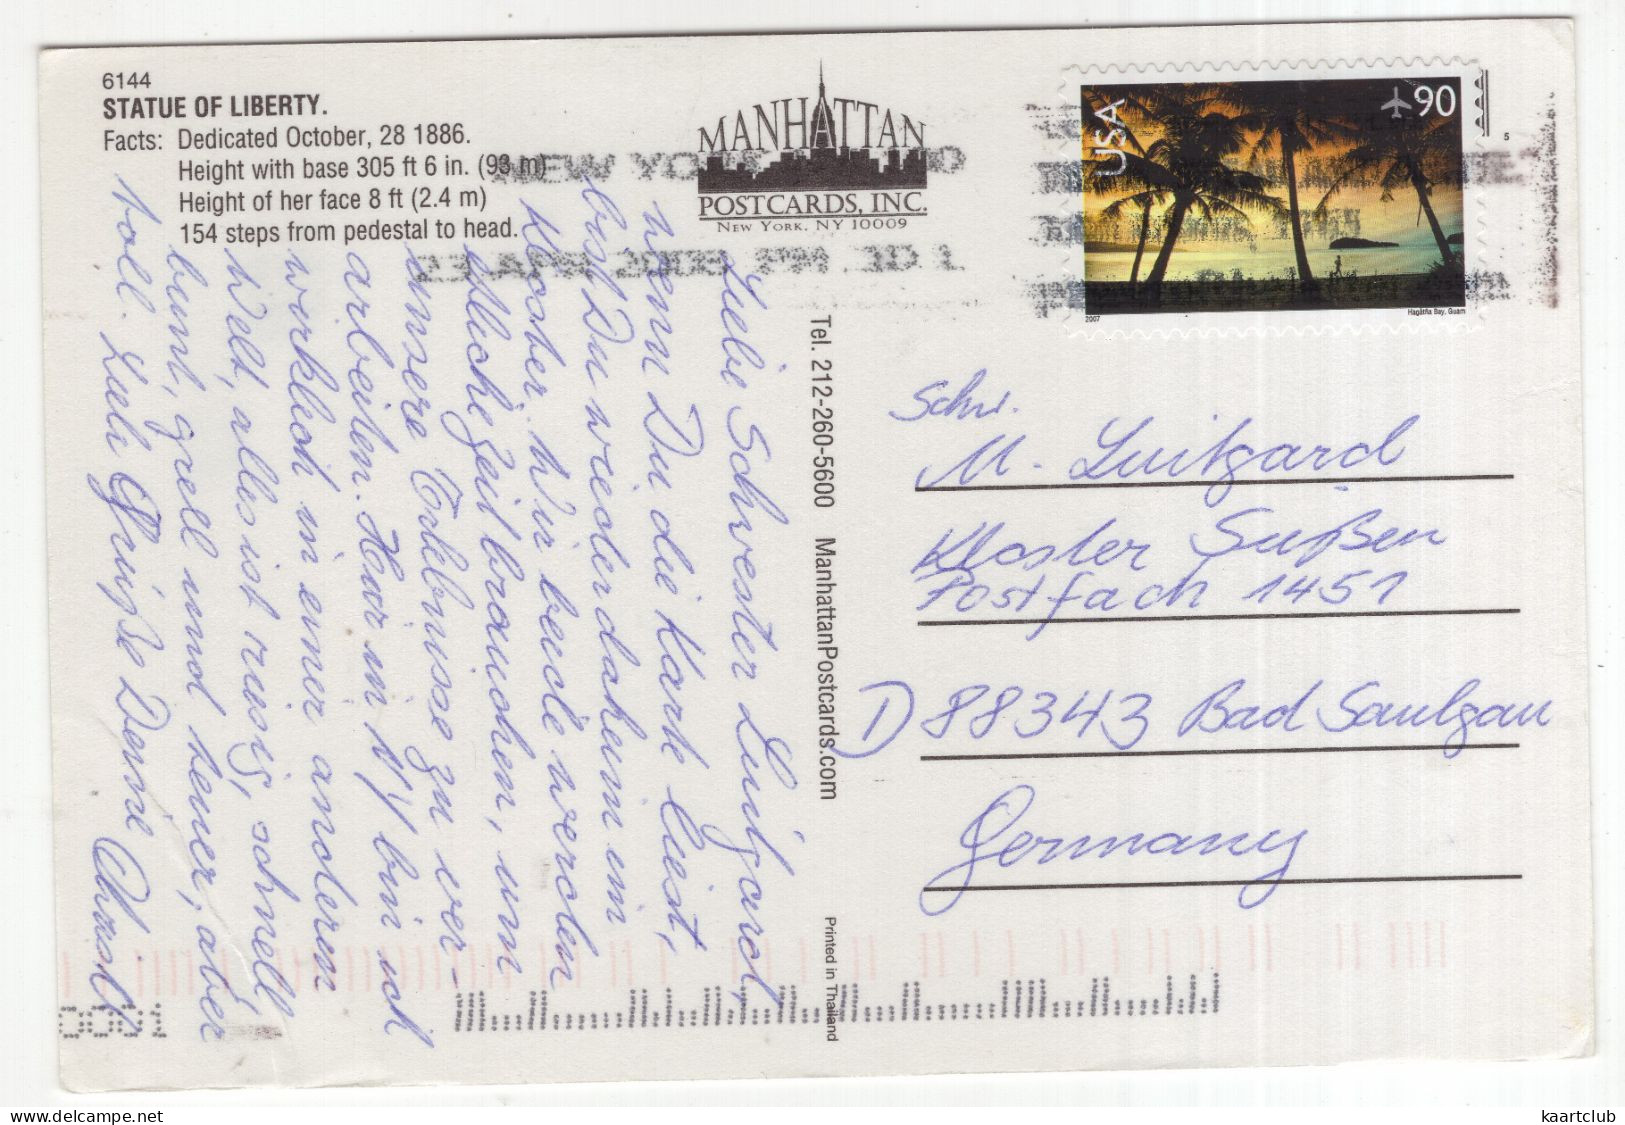 6144
STATUE OF LIBERTY.
Facts: Dedicated October, 28 1886.
Height with base 305 ft 6 in. (93 m)
Height of her face 8 ft (2.4 m)
154 steps from pedestal to head.
MANHATTAN
POSTCARDS, INC.
NEW YORK, NY 10009
USA
90
2007
Hagåtña Bay, Guam
5
NEW YO
Liebe Schwester Luitgard,
wenn Du die Karte liest,
bist Du wieder daheim im
Kloster. Wir beide werden
etliche Zeit brauchen, um
unsere Erlebnisse zu ver-
arbeiten. Hier in NY bin ich
wirklich in einer anderen
Welt, alles ist riesig, schnell
bunt, grell und teuer, aber
toll. Liebe Grüße Deine
Tel. 212-260-5600 ManhattanPostcards.com
Printed in Thailand
Schw.
M. Luitgard
Kloster Sießen
Postfach 1451
D 88343 Bad Saulgau
Germany
kaartclub